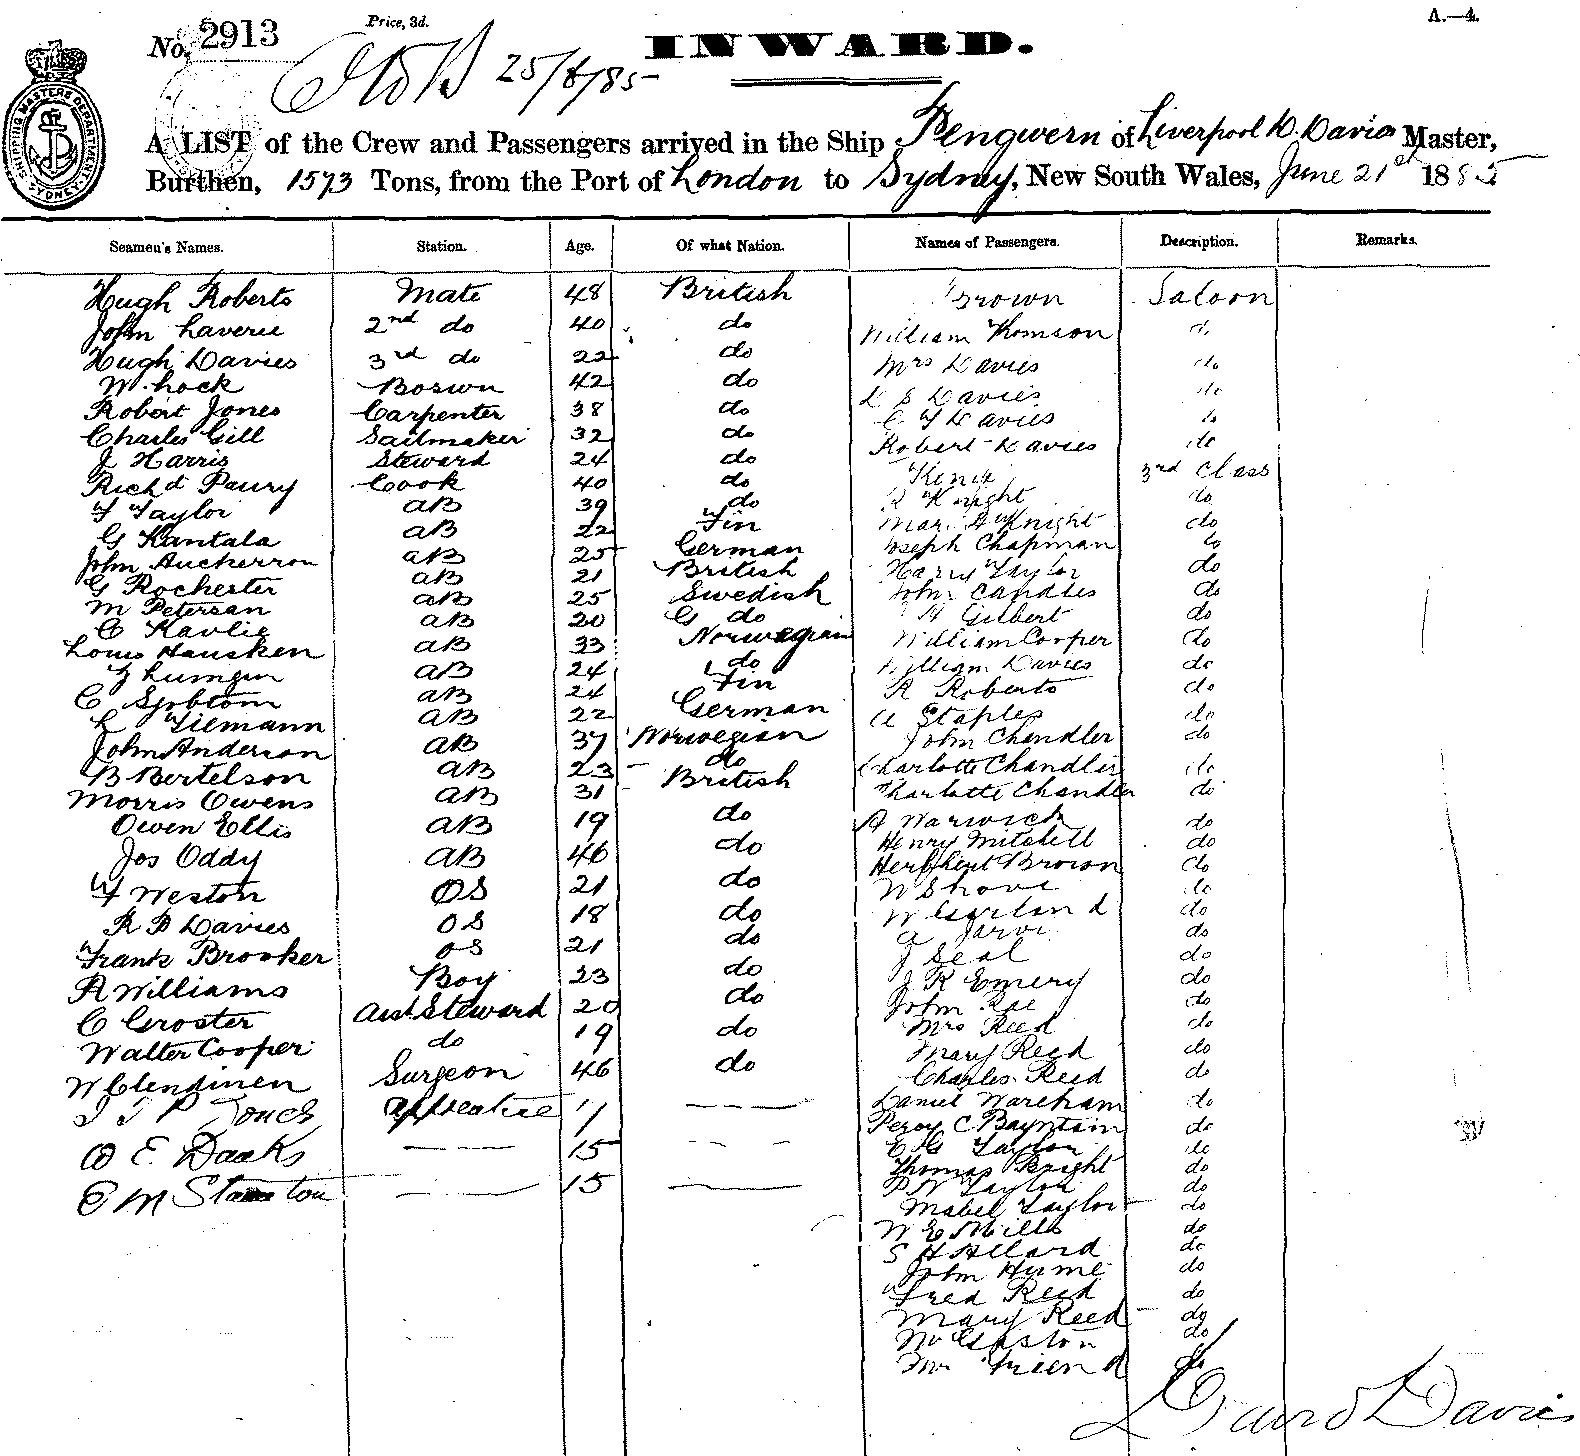 A.—4.
Price, 3d.
No. 2913
INWARD.
25/6/85
A LIST of the Crew and Passengers arrived in the Ship Pengwern of Liverpool D. Davies Master,
Burthen, 1573 Tons, from the Port of London to Sydney, New South Wales, June 21st 1885
Seamen's Names. Station. Age. Of what Nation. Names of Passengers. Description. Remarks.
Hugh Roberts Mate 48 British Brown Saloon
John Laverie 2nd do 40 do William Thomson do
Hugh Davies 3rd do 22 do Mrs Davies do
W. Lock Bosun 42 do D S Davies do
Robert Jones Carpenter 38 do C Y Davies do
Charles Gill Sailmaker 32 do Robert Davies do
J Harris Steward 24 do 3rd Class
Richd Paury Cook 40 do Knight do
F Taylor AB 39 do Knight do
G Kantala AB 22 Fin Joseph Chapman do
John Auckerron AB 25 German Harry Taylor do
G Rochester AB 21 British John Candles do
M Petersan AB 25 Swedish H Gilbert do
C Kavlie AB 20 G do William Cooper do
Louis Hausken AB 33 Norwegian William Davies do
AB 24 do R Roberts do
C Sjoblom AB 24 Fin A Staples do
L Tilemann AB 22 German John Chandler do
John Anderson AB 37 Norwegian Charlotte Chandler do
B Bertelson AB 23 do Charlotte Chandler do
Morris Owens AB 31 British A Warwick do
Owen Ellis AB 19 do Henry Mitchell do
Jos Oddy AB 46 do Brown do
F Weston OS 21 do W Shove do
R B Davies OS 18 do W Garland do
Frank Brooker OS 21 do do
R Williams Boy 23 do J Seal do
C Groster Asst. Steward 20 do J R Emery do
Walter Cooper do 19 do John Rae do
W Clendinen Surgeon 46 do Mrs Reed do
Apprentice Mary Reed do
E. 15 Charles Reed do
E M 15 Daniel Wareham do
Percy C Bayntam do
Taylor do
Thomas Bright do
P W Taylor do
Mabel Taylor do
W E Mills do
S H Allard do
John Hume do
Fred Reed do
Mary Reed do
do
Friend do
David Davies